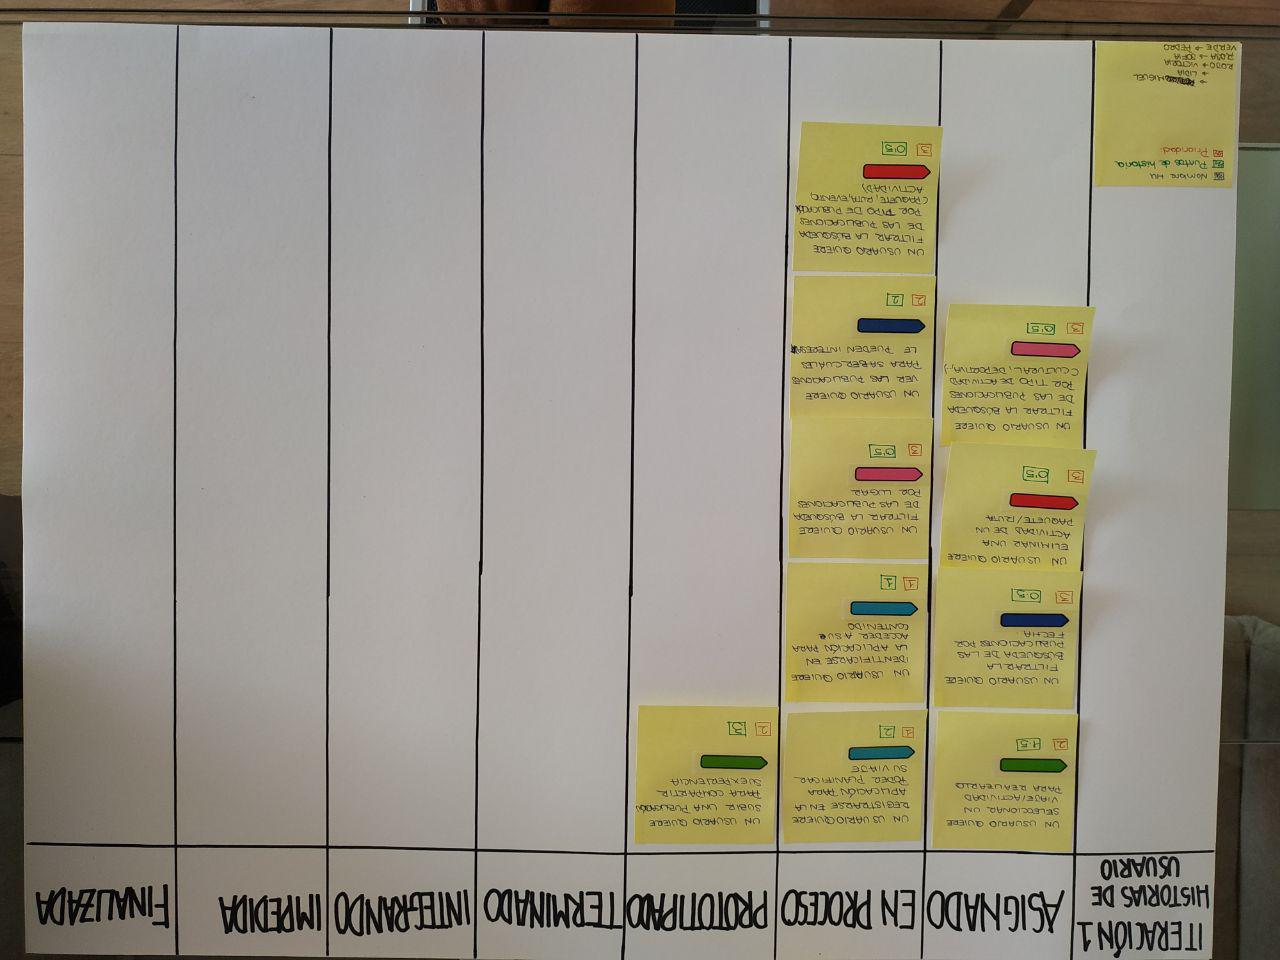 ITERACIÓN 1
HISTORIAS DE
USUARIO
ASIGNADO
EN PROCESO
PROTOTIPADO
TERMINADO
INTEGRANDO
IMPEDIDA
FINALIZADA
UN USUARIO QUIERE
SELECCIONAR UN
VIAJE/ACTIVIDAD
PARA REALIZARLO
2 1.5
UN USUARIO QUIERE
FILTRAR LA
BÚSQUEDA DE LAS
PUBLICACIONES POR
FECHA.
3 0.5
UN USUARIO QUIERE
ELIMINAR UNA
ACTIVIDAD DE UN
PAQUETE/RUTA
3 0'5
UN USUARIO QUIERE
FILTRAR LA BÚSQUEDA
DE LAS PUBLICACIONES
POR TIPO DE ACTIVIDAD
(CULTURAL, DEPORTIVA,..)
3 0'5
UN USUARIO QUIERE
REGISTRARSE EN LA
APLICACIÓN PARA
PODER PLANIFICAR
SU VIAJE
1 2
UN USUARIO QUIERE
IDENTIFICARSE EN
LA APLICACIÓN PARA
ACCEDER A SU
CONTENIDO
1 1
UN USUARIO QUIERE
FILTRAR LA BÚSQUEDA
DE LAS PUBLICACIONES
POR LUGAR
3 0'5
UN USUARIO QUIERE
VER LAS PUBLICACIONES
PARA SABER CUÁLES
LE PUEDEN INTERESAR
2 2
UN USUARIO QUIERE
FILTRAR LA BÚSQUEDA
DE LAS PUBLICACIONES
POR TIPO DE PUBLICACIÓN
(PAQUETE, RUTA, EVENTO,
ACTIVIDAD)
3 0'5
UN USUARIO QUIERE
SUBIR UNA PUBLICACIÓN
PARA COMPARTIR
SU EXPERIENCIA
2 3
Nombre HU
Puntos de historia
Prioridad
→ MIGUEL
→ LIDIA
ROJO → VICTORIA
ROSA → SOFIA
VERDE → PEDRO